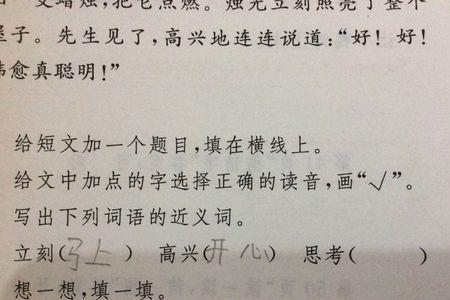 支蜡烛,把它点燃。烛光立刻照亮了整个
屋子。先生见了,高兴地连连说道:“好!好!
韩愈真聪明!”
给短文加一个题目,填在横线上。
给文中加点的字选择正确的读音,画“√”。
写出下列词语的近义词。
立刻(马上) 高兴(开心) 思考( )
想一想,填一填。